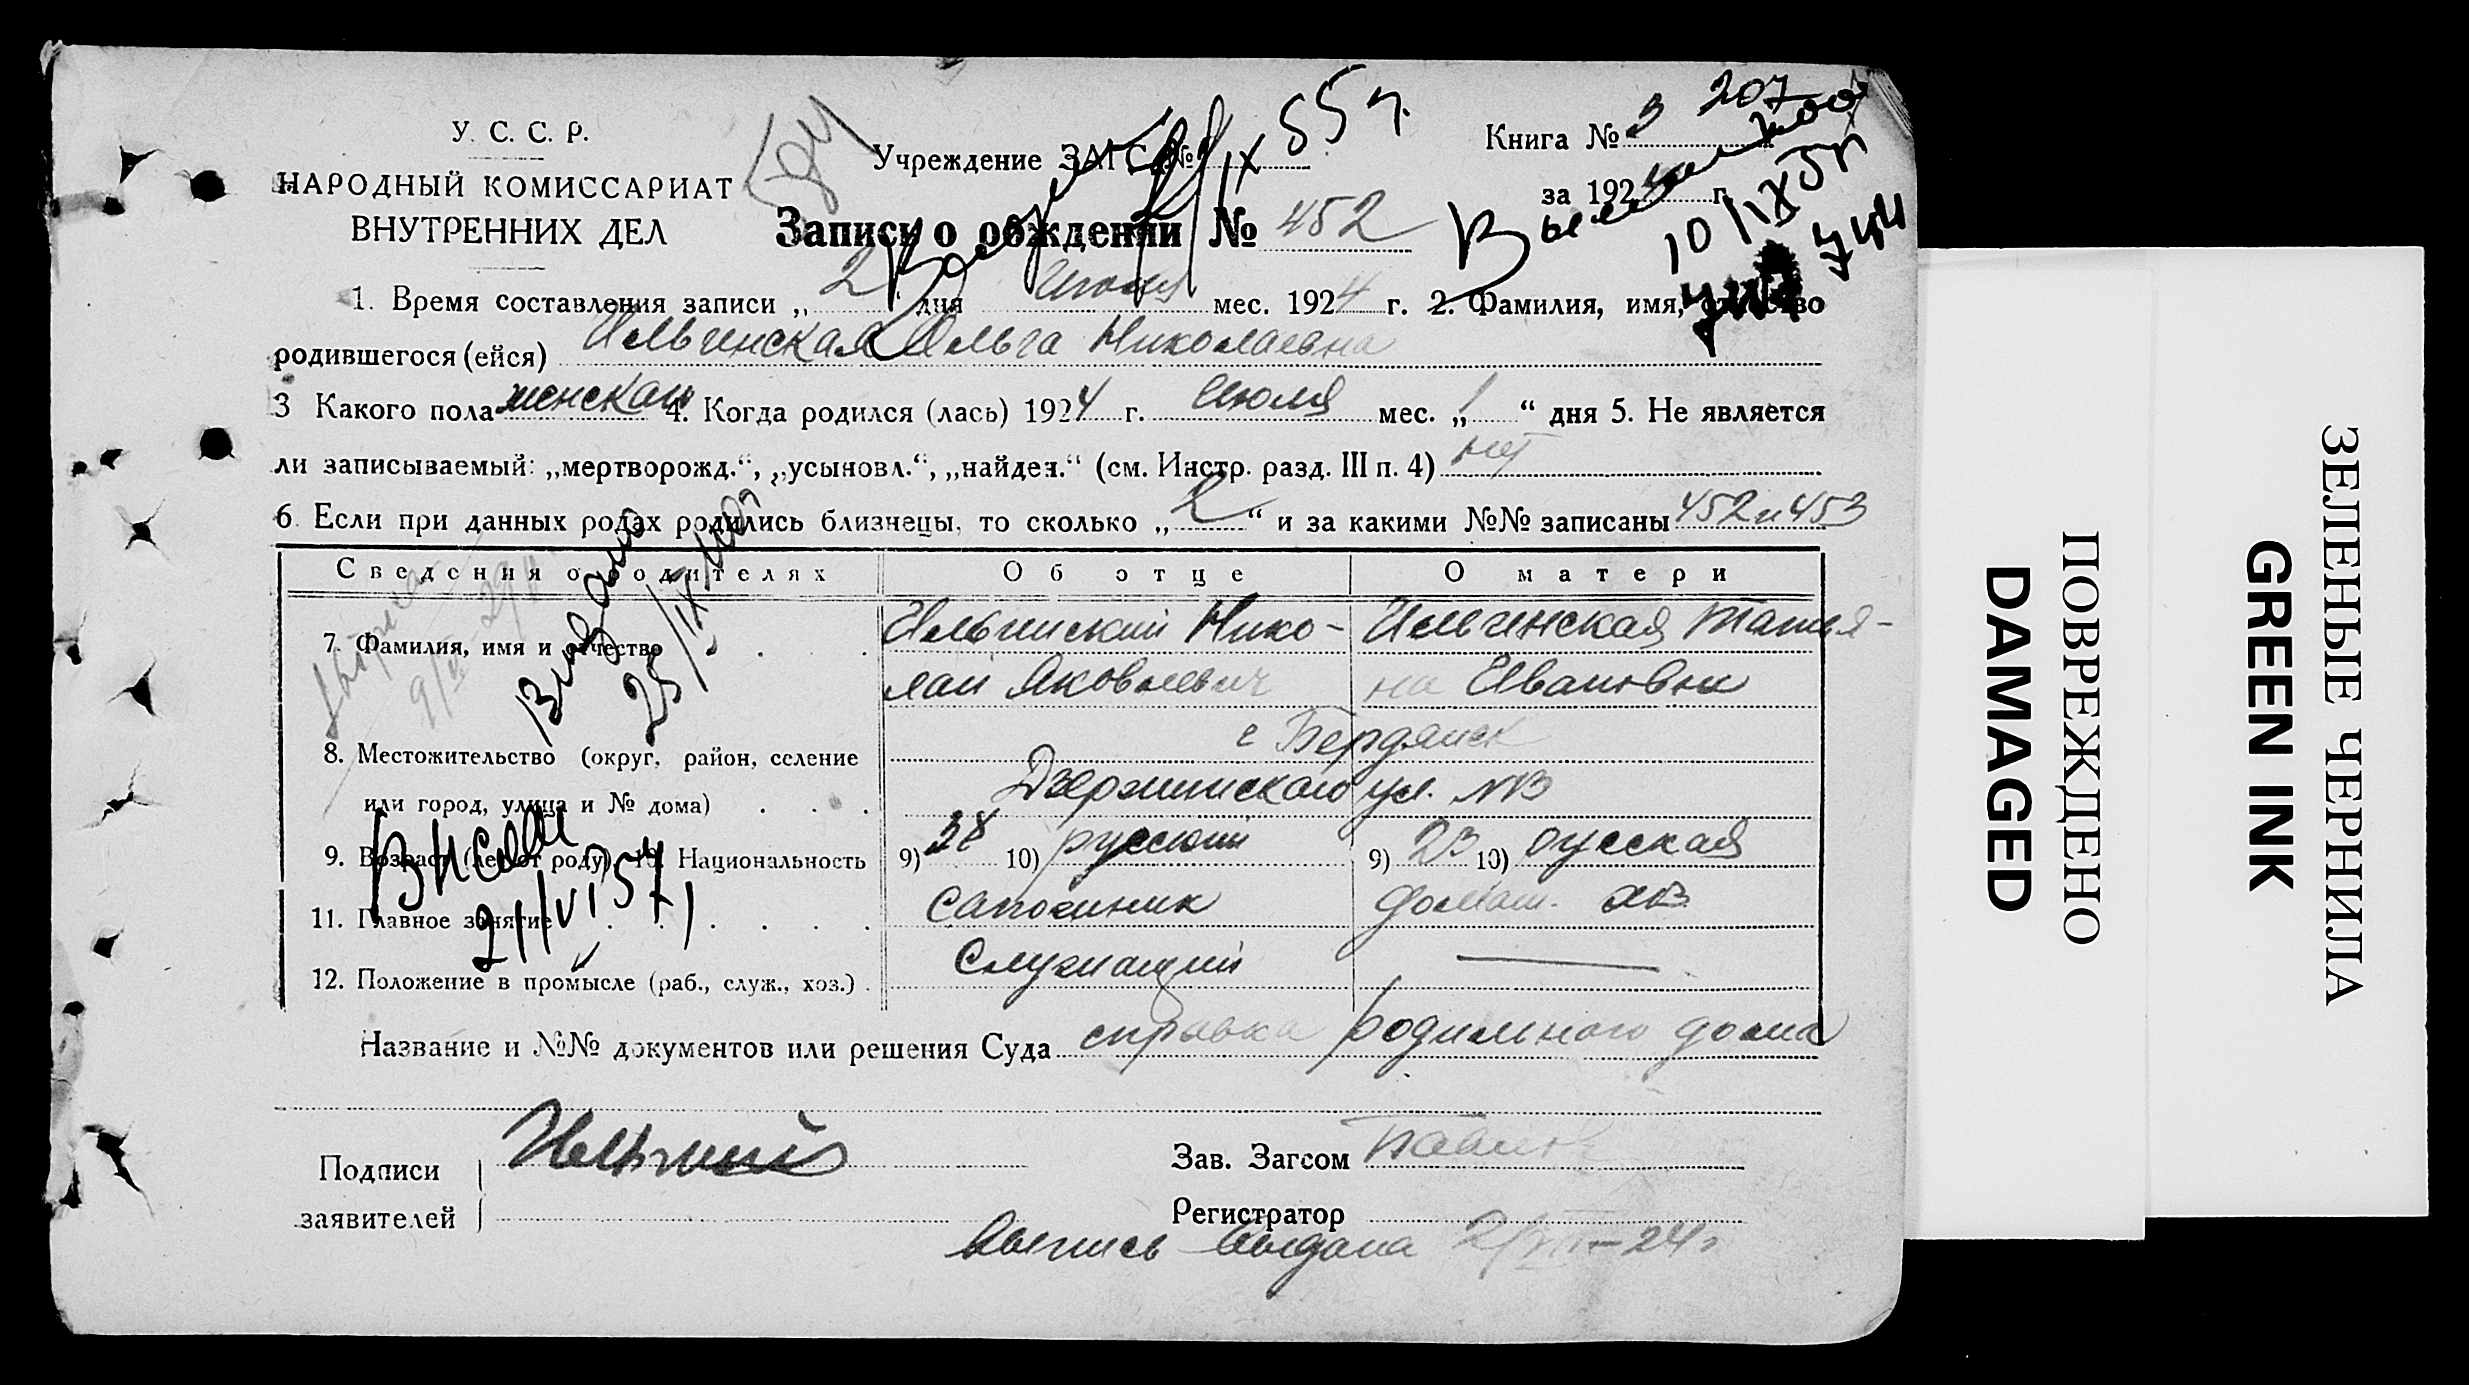 У. С. С. Р.
НАРОДНЫЙ КОМИССАРИАТ
ВНУТРЕННИХ ДЕЛ
Учреждение ЗАГС №
IX 55 г.
Книга № 3 207
за 1924 г.
10/IX 57 г.
Запись о рождении № 452
1. Время составления записи „2“ дня Июля мес. 1924 г. 2. Фамилия, имя, отчество
родившегося (ейся) Ильинская Ольга Николаевна
3 Какого пола женская 4. Когда родился (лась) 1924 г. Июля мес. „1“ дня 5. Не является
ли записываемый: „мертворожд.“, „усыновл.“, „найден.“ (см. Инстр. разд. III п. 4) нет
6. Если при данных родах родились близнецы, то сколько „2“ и за какими №№ записаны 452 и 453
Сведения о родителях Об отце О матери
7. Фамилия, имя и отчество Ильинский Нико- Ильинская Татия-
лай Яковлевич на Ивановна
8. Местожительство (округ, район, селение г Бердянск
или город, улица и № дома) Дзержинского ул. №3
9. Возраст (лет от роду) 10. Национальность 9) 38 10) русский 9) 23 10) русская
11. Главное занятие сапожник домаш. хоз.
12. Положение в промысле (раб., служ., хоз.) Служащий —
Выдано
25/IX
21/VI 57 г
Название и №№ документов или решения Суда справка родильного дома
Подписи
заявителей
Зав. Загсом
Регистратор
Выпись выдана 2/VII–24 г
ПОВРЕЖДЕНО
DAMAGED
ЗЕЛЕНЫЕ ЧЕРНИЛА
GREEN INK